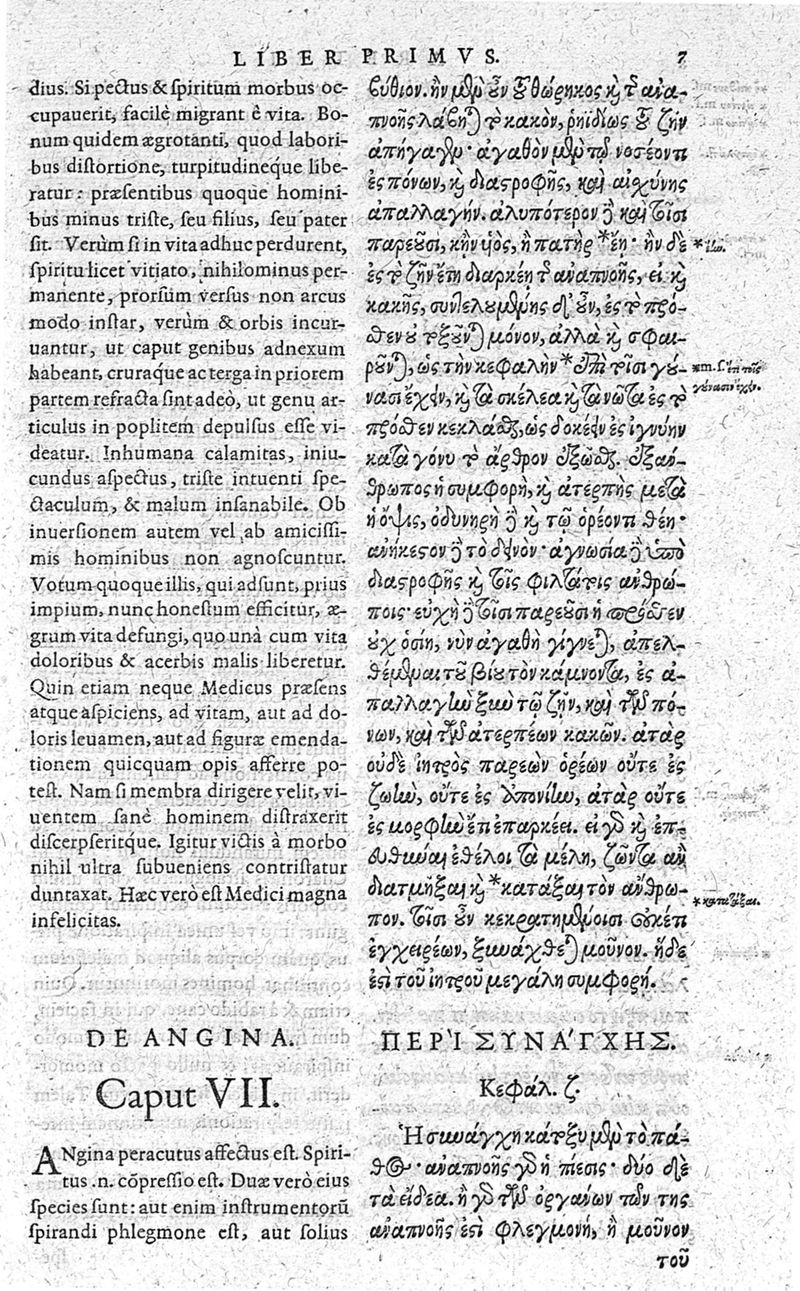 LIBER PRIMVS. 7
dius. Si pectus & spiritum morbus oc-
cupauerit, facilè migrant è vita. Bo-
num quidem ægrotanti, quod labori-
bus distortione, turpitudineque libe-
ratur: præsentibus quoque homini-
bus minus triste, seu filius, seu pater
sit. Verùm si in vita adhuc perdurent,
spiritu licet vitiato, nihilominus per-
manente, prorsum versus non arcus
modo instar, verùm & orbis incur-
uantur, ut caput genibus adnexum
habeant, cruraque ac terga in priorem
partem refracta sint adeò, ut genu ar-
ticulus in poplitem depulsus esse vi-
deatur. Inhumana calamitas, iniu-
cundus aspectus, triste intuenti spe-
ctaculum, & malum insanabile. Ob
inuersionem autem vel ab amicissi-
mis hominibus non agnoscuntur.
Votum quoque illis, qui adsunt, prius
impium, nunc honestum efficitur, æ-
grum vita defungi, quo unà cum vita
doloribus & acerbis malis liberetur.
Quin etiam neque Medicus præsens
atque aspiciens, ad vitam, aut ad do-
loris leuamen, aut ad figuræ emenda-
tionem quicquam opis afferre po-
test. Nam si membra dirigere velit, vi-
uentem sanè hominem distraxerit
discerpseritque. Igitur victis à morbo
nihil ultra subueniens contristatur
duntaxat. Hæc verò est Medici magna
infelicitas.
DE ANGINA.
Caput VII.
ANgina peracutus affectus est. Spiri-
tus .n. cōpressio est. Duæ verò eius
species sunt: aut enim instrumentorū
spirandi phlegmone est, aut solius
βύθιον. ἢν μὲν οὖν τοῦ θώρηκος καὶ τῆς ἀνα-
πνοῆς λάβηται τὸ κακὸν, ῥηϊδίως τοῦ ζῆν
ἀπήγαγεν· ἀγαθὸν μὲν τῷ νοσέοντι
ἐς πόνων, καὶ διαστροφῆς, καὶ αἰσχύνης
ἀπαλλαγήν. ἀλυπότερον δὲ καὶ τοῖσι
παρεοῦσι, κἢν υἱὸς, ἢ πατὴρ *ἔῃ· ἢν δὲ
ἐς τὸ ζῆν ἔτι διαρκέῃ τῆς ἀναπνοῆς, εἰ καὶ
κακῆς, συντελουμένης δ' οὖν, ἐς τὸ πρό-
σθεν οὐ τοξοῦνται μόνον, ἀλλὰ καὶ σφαι-
ροῦνται, ὡς τὴν κεφαλὴν *ἐπὶ τοῖσι γού-
νασι ἔχειν, καὶ τὰ σκέλεα καὶ τὰ νῶτα ἐς τὸ
πρόσθεν κεκλάσθαι, ὡς δοκέειν ἐς ἰγνύην
κατὰ γόνυ τὸ ἄρθρον ἐξῶσθαι. ἐξάν-
θρωπος ἡ συμφορὴ, καὶ ἀτερπὴς μετὰ
ἡ ὄψις, ὀδυνηρὴ δὲ καὶ τῷ ὁρέοντι θέη·
ἀνήκεστον δὲ τὸ δεινόν· ἀγνωσία δὲ ὑπὸ
διαστροφῆς καὶ τοῖς φιλτάτοις ἀνθρώ-
ποις· εὐχὴ δὲ τοῖσι παρεοῦσι ἡ πρόσθεν
οὐχ ὁσίη, νῦν ἀγαθὴ γίγνεται, ἀπελ-
θέμεναι τοῦ βίου τὸν κάμνοντα, ἐς ἀ-
παλλαγὴν ξὺν τῷ ζῆν, καὶ τῶν πό-
νων, καὶ τῶν ἀτερπέων κακῶν. ἀτὰρ
οὐδὲ ἰητρὸς παρεὼν ὁρέων οὔτε ἐς
ζωὴν, οὔτε ἐς ἀπονίην, ἀτὰρ οὔτε
ἐς μορφὴν ἔτι ἐπαρκέει. εἰ γὰρ καὶ ἐπ-
ευθῦναι ἐθέλοι τὰ μέλη, ζῶντα ἂν
διατμῆξαι καὶ *κατάξαι τὸν ἄνθρω-
πον. τοῖσι οὖν κεκρατημένοισι οὐκέτι
ἐγχειρέων, ξυνάχθεται μοῦνον. ἥδε
ἐστὶ τοῦ ἰητροῦ μεγάλη συμφορή.
ΠΕΡῚ ΣΥΝΆΓΧΗΣ.
Κεφάλ. ζ.
Ἡ συνάγχη κάτοξυ μὲν τὸ πά-
θος· ἀναπνοῆς γὰρ ἡ πίεσις· δύο δὲ
τὰ εἴδεα. ἢ γὰρ τῶν ὀργάνων τῶν τῆς
ἀναπνοῆς ἐστὶ φλεγμονὴ, ἢ μοῦνον
τοῦ
*καταξᾶσαι.